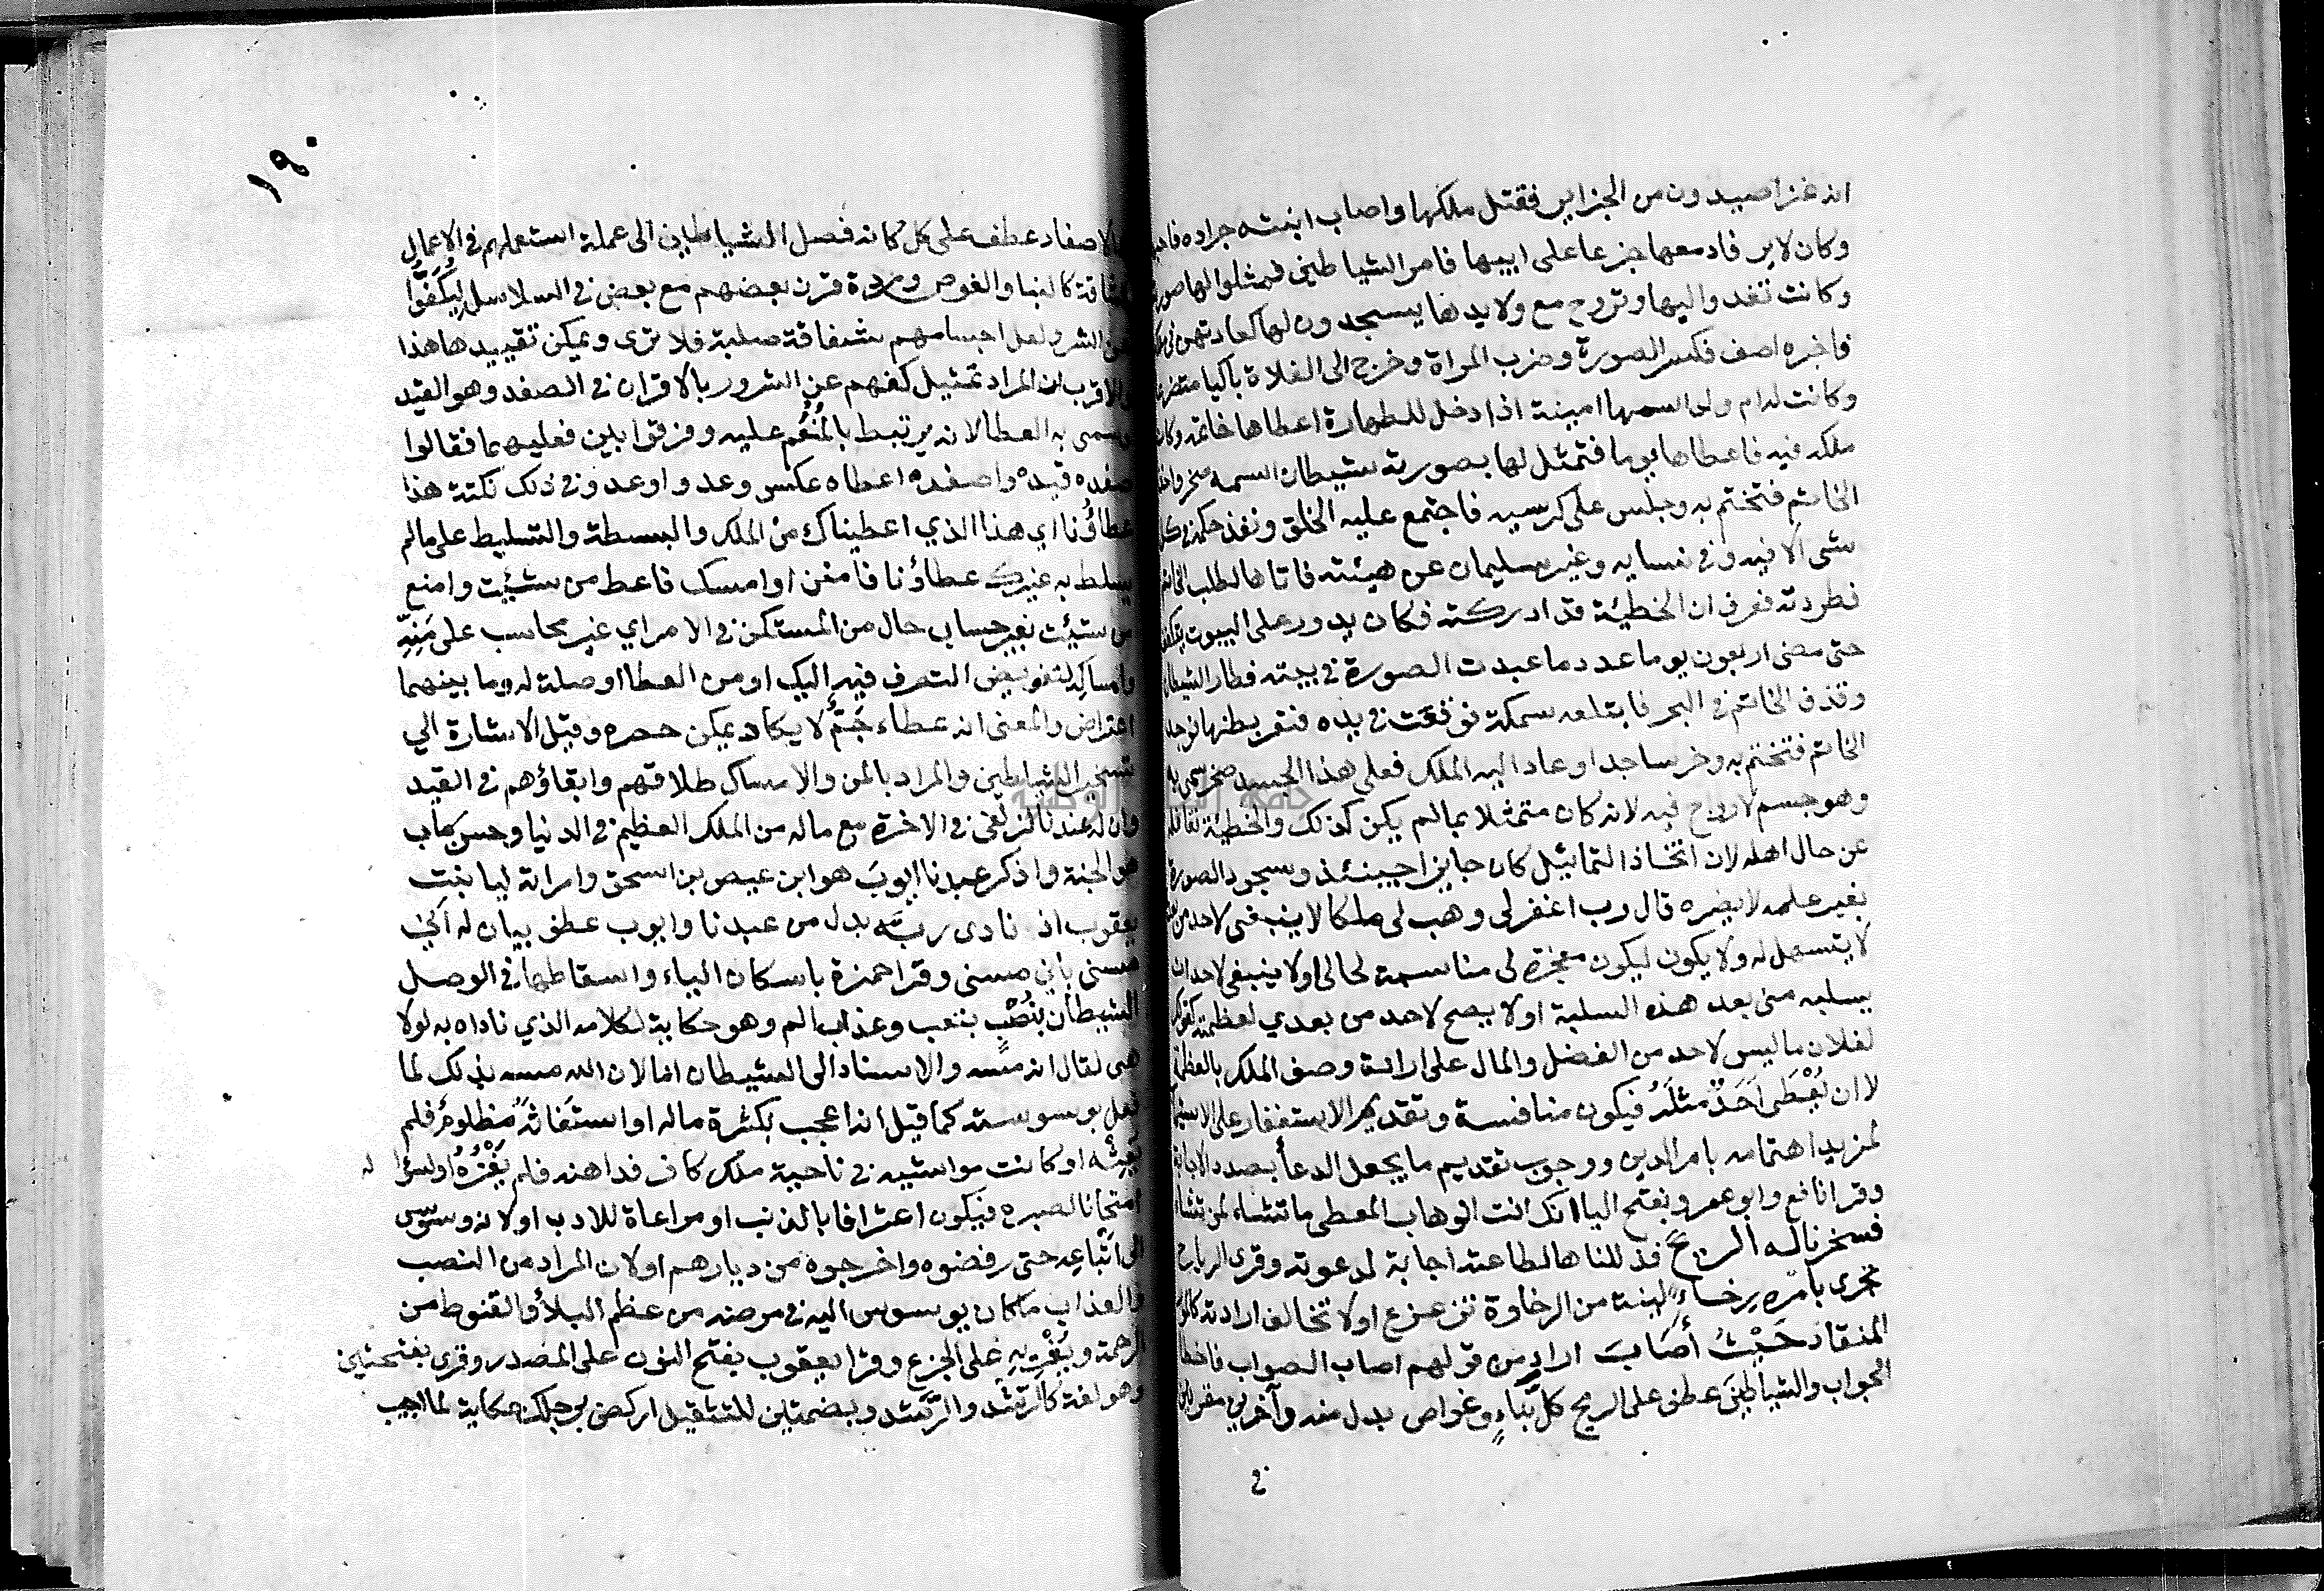 انه غزا صيدون من الجزاير فقتل ملكها واصاب ابنته جراده فاحبها
وكان لا يرقا دمعها جزعا على ابيها فامر الشياطين فمثلوا لها صورته
وكانت تغدوا اليها وتروح مع ولايدها يسجدون لها كعادتهن في ملكه
فاخبره اصف فكسر الصورة وضرب المراة وخرج الى الفلاة باكيا متضرعا
وكانت له ام ولد اسمها امينة اذا دخل للطهارة اعطاها خاتمه وكان
ملكه فيه فاعطاها يوما فتمثل لها بصورته شيطان اسمه صخر واخذ
الخاتم فتختم به وجلس على كرسيه فاجتمع عليه الخلق ونفذ حكمه في كل
شى الا فيه وفي نسايه وغير سليمان عن هيئته فاتاها لطلب الخاتم
فطردته فعرف ان الخطيئة قد ادركته فكان يدور على البيوت يتكفف
حتى مضى اربعون يوما عدد ما عبدت الصورة في بيته فطار الشيطان
وقذف الخاتم في البحر فابتلعه سمكة فوقعت في يده فبقر بطنها فوجد
الخاتم فتختم به وخر ساجدا وعاد اليه الملك فعلى هذا الجسد صخر سمى به
وهو جسم لا روح فيه لانه كان متمثلا بما لم يكن كذلك والخطيئة تغافله
عن حال اهله لان اتخاذ التماثيل كان جايزا حينئذ وسجود الصورة
بغير علمه لا يضره قال رب اغفر لى وهب لى ملكا لا ينبغى لاحد من بعدى
لا يتسهل له ولا يكون ليكون معجزة لى مناسبة لحالى اولا ينبغى لاحد ان
يسلبه منى بعد هذه السلبة اولا يصح لاحد من بعدي لعظمته كقولك
لفلان ما ليس لاحد من الفضل والمال على ارادة وصف الملك بالعظمة
لا ان يُعْطَى اَحَدٌ مثلَهُ فيكون منافسة وتقديم الاستغفار على الاستيهاب
لمزيد اهتمامه بامر الدين ووجوب تقديم ما يجعل الدعأ بصدد الاجابة
وقرا نافع وابو عمرو بفتح اليا انك انت الوهاب المعطى ما تشاء لمن تشاء
فسخرنا له الريحَ فذللناها لطاعته اجابة لدعوته وقرى الرياح
تجرى بامره رخاءً لينة من الرخاوة لا تزعزع اولا تخالف ارادته كالمامور
المنقاد حَيْثُ أصَابَ اراد من قولهم اصاب الصواب فاخطا
الجواب والشياطينَ عطف على الريح كل بَنَّاءٍ وغواص بدل منه وآخرين مقرنين
في
١٩٠
بالاصفاد عطف على كل كانه فصل الشياطين الى عملة استعملهم في الاعمال
الشاقة كالبنا والغوص ومردة قرن بعضهم مع بعض في السلاسل ليُكَفّوُا
عن الشر ولعل اجسامهم شفافة صلبة فلا ترى ويمكن تقييدها هذا
والاقرب ان المراد تمثيل كفهم عن الشرور بالاقران في الصفد وهو القيد
وسمى به العطا لانه يرتبط بالمُنْعَم عليه وفرقوا بين فعليهما فقالوا
صفده قيده واصفده اعطاه عكس وعد واوعد وفي ذلك نكتة هذا
عطاؤُنا اي هذا الذي اعطيناك من الملك والبسطة والتسليط على ما لم
يسلط به غيرك عطاؤنا فامنن او امسك فاعط من شئيت وامنع
من شئيت بغير حساب حال من المستكن في الامر اي غير محاسب على مَنِّهِ
وامساكِه لتفويض التصرف فيه اليك او من العطا او صلة له وما بينهما
اعتراض والمعنى انه عطاء جَمٌّ لا يكاد يمكن حصره وقيل الاشارة الي
تسخير الشياطين والمراد بالمن والامساك طلاقهم وابقاؤهم في القيد
وان له عندنا لزلفى في الاخرة مع ماله من الملك العظيم في الدنيا وحسن ماب
هو الجنة واذكر عبدنا ايوبَ هو ابن عيص بن اسحق وامراته ليا بنت
يعقوب اذ نادى ربَّه بدل من عبدنا وايوب عطف بيان له اَنّي
مسنى باني مسنى وقرا حمزة باسكان الياء واسقاطها في الوصل
الشيطان بنُصْبٍ بتعب وعذاب الم وهو حكاية لكلامه الذي ناداه به لولا
هى لقال انه مسه والاسناد الى الشيطان اما لان الله مسه بذلك لما
فعل بوسوسته كما قيل انه اعجب بكثرة ماله او استغاثه مظلومٌ فلم
يُغِثْه او كانت مواشيه في ناحية ملك كافر فداهنه فلم يَغْزُه او لسؤاله
امتحانا لصبره فيكون اعترافا بالذنب او مراعاة للادب اولانه وسوس
الى اتْباعِه حتى رفضوه واخرجوه من ديارهم اولان المراد من النصب
والعذاب ما كان يوسوس اليه في مرضه من عظم البلأ والقنوط من
الرحمة ويُغْريه على الجزع وقرا يعقوب بفتح النون على المصدر وقرى بفتحتين
وهو لغة كالرُّشْد والرَّشَد وبضمتين للتثقيل اركض برجلك حكاية لما اجيب